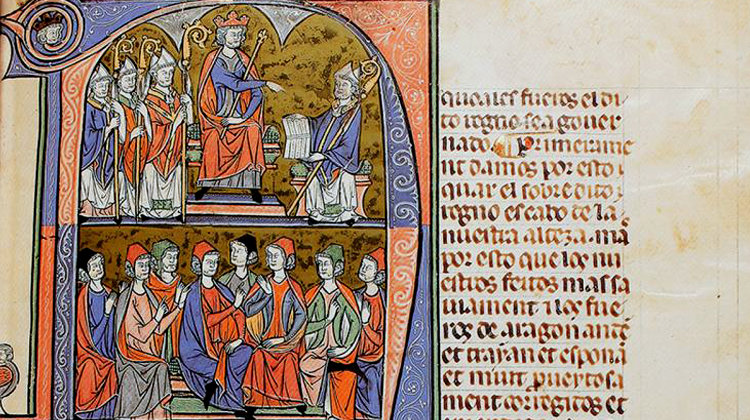 queales fueros el di
to regno sea gouer
nado. Primeramē
nt damos por esto i
quar el sobre dito
regno es cabo de la
nuestra alteza. mas
por esto que los nu
estros feitos mas sa
uiament i los fue
ros de aragon ante
et trayan et espona
et muit prueytosa
ment corregitos et